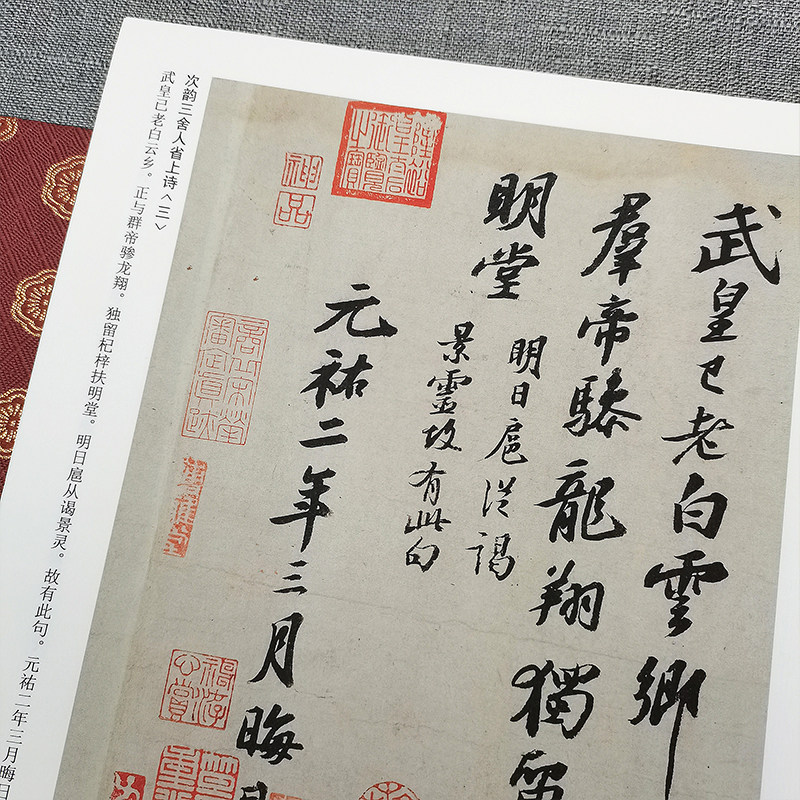 武皇已老白雲鄉
羣帝驂龍翔獨留
明堂
明日扈從謁
景靈故有此句
元祐二年三月晦日
神品
次韵三舍人省上诗<三>
武皇已老白云乡。正与群帝骖龙翔。独留杞梓扶明堂。明日扈从谒景灵。故有此句。元祐二年三月晦日